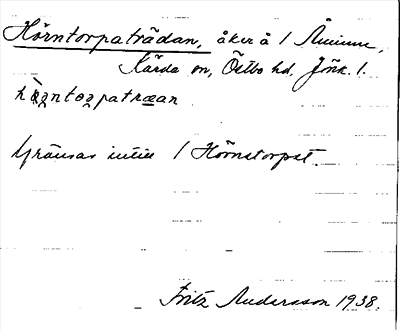 Hörntorpaträdan, åker å 1 Åminne,
Kärda sn, Östbo hd, Jönk. l.
hœ̀ṇntoṛpatræan
Gränsar intill 1 Hörnstorpet.
Fritz Andersson 1938.